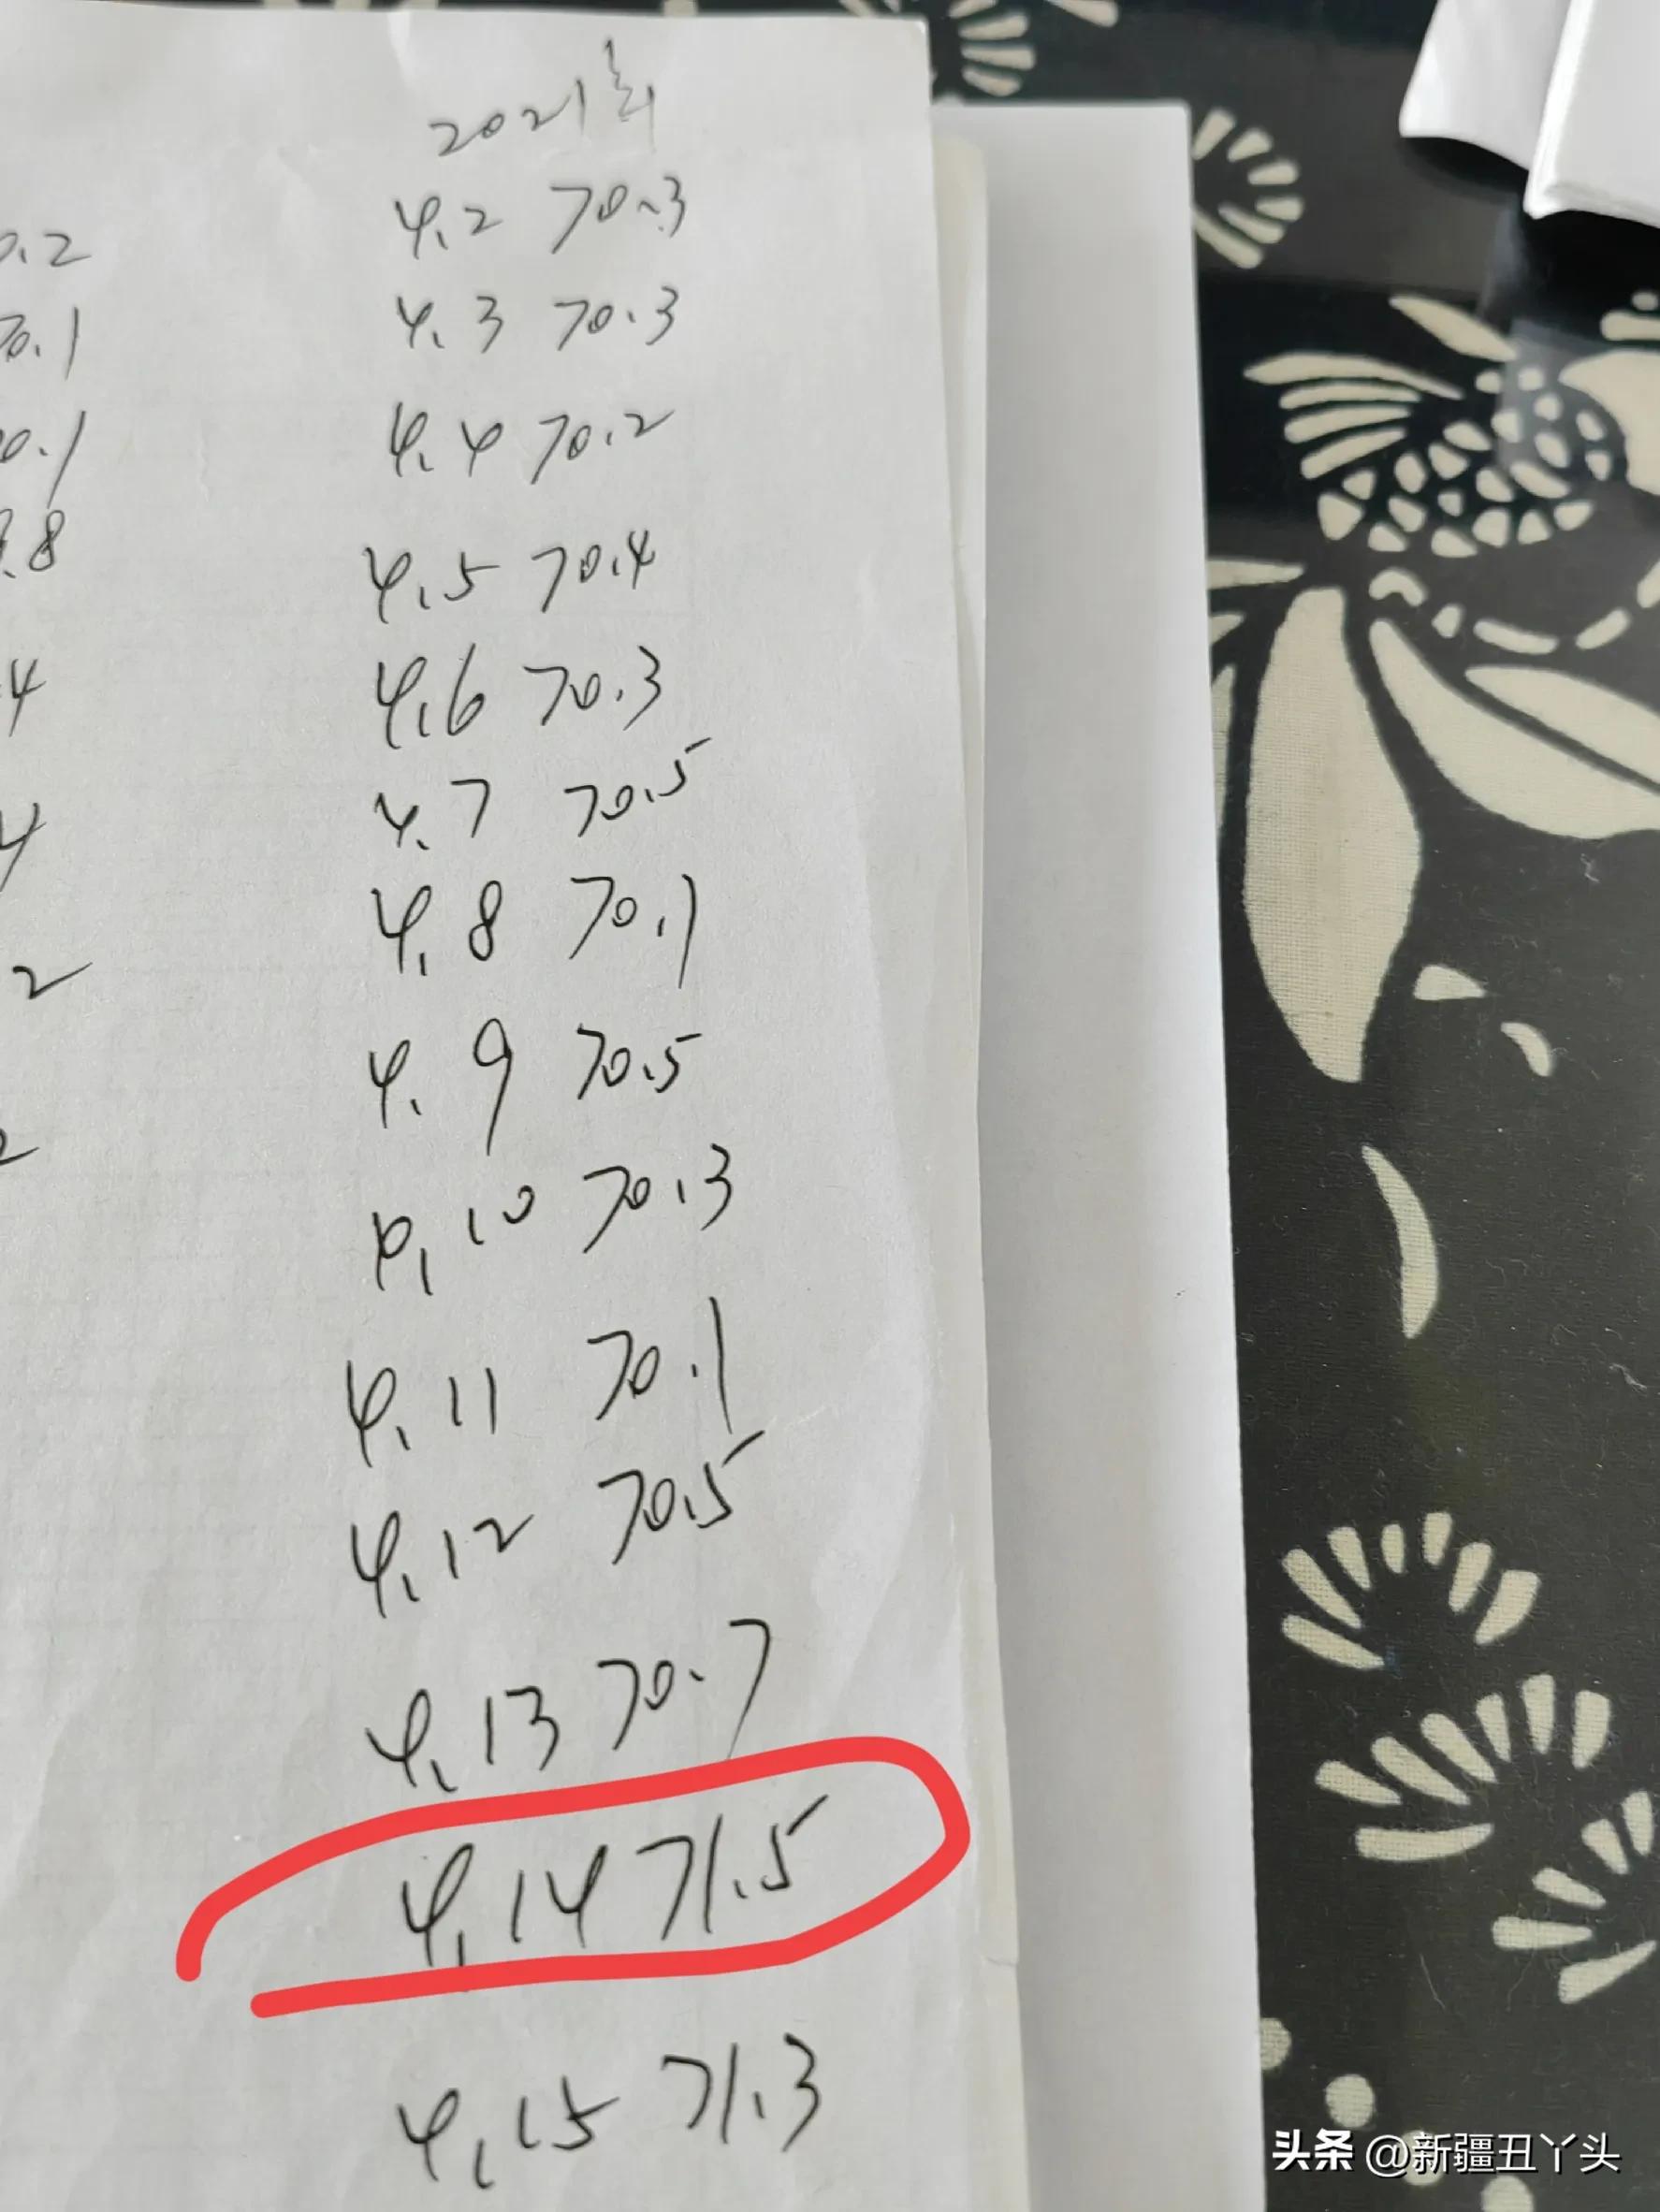 2021年
4.2 70.3
4.3 70.3
4.4 70.2
4.5 70.4
4.6 70.3
4.7 70.5
4.8 70.1
4.9 70.5
4.10 70.3
4.11 70.1
4.12 70.5
4.13 70.7
4.14 71.5
4.15 71.3
0.2
70.1
0.1
.8
.4
4
2
2
头条 @新疆丑丫头